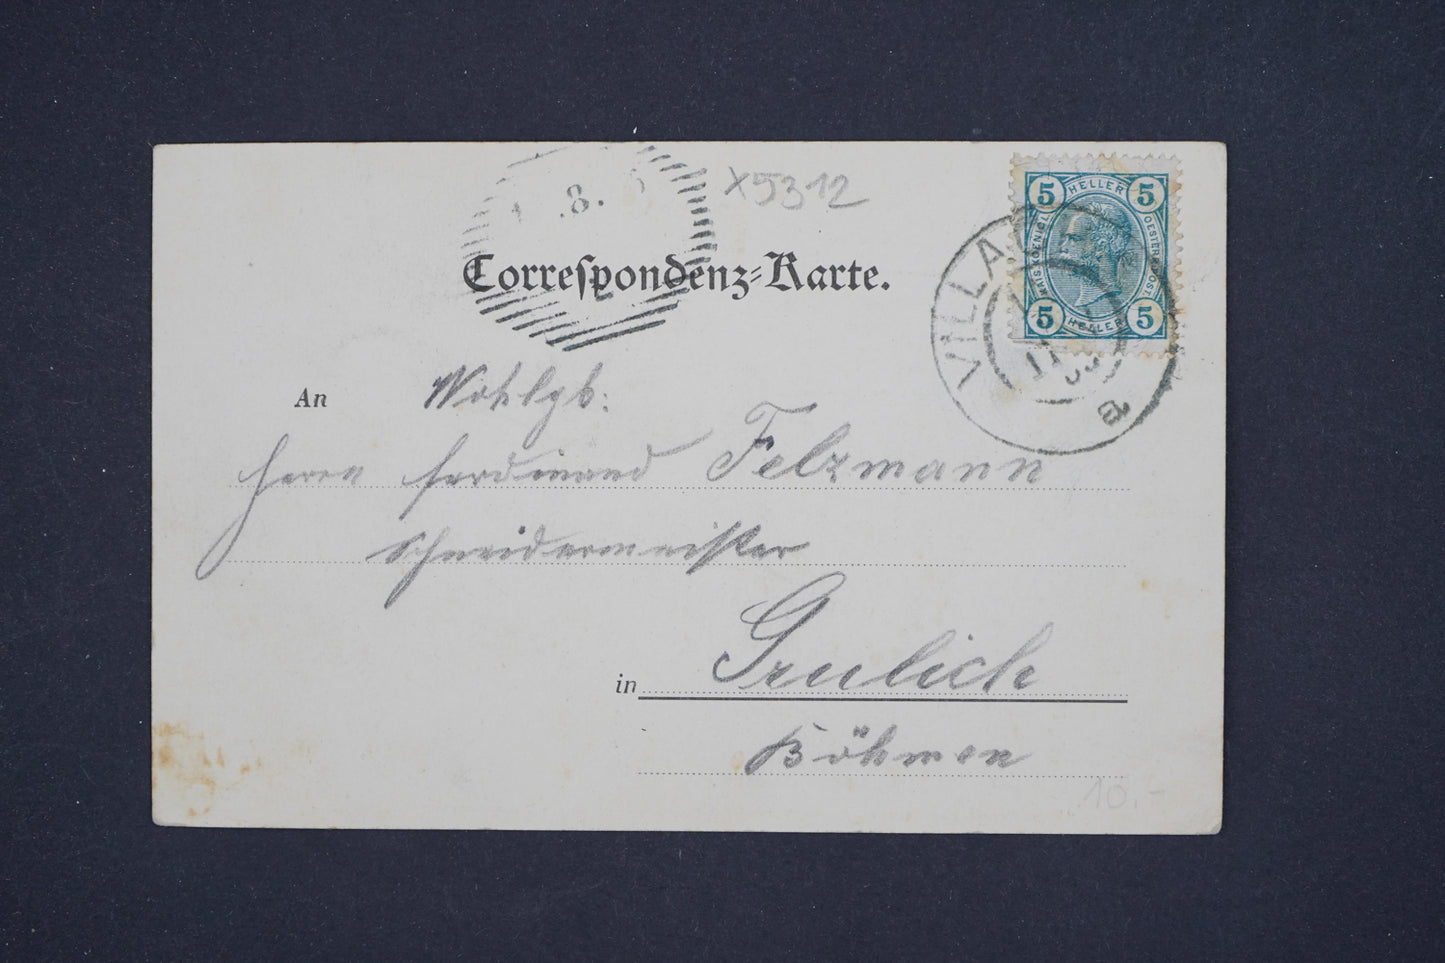 .8.
X5312
Correspondenz-Karte.
5 HELLER 5
KAIS. KOENIGL. OESTERR. POST
5 HELLER 5
VILLA
11
a
An Wohlgb:
Herrn Ferdinand Felzmann
Schneidermeister
in Grulich
Böhmen
10.-